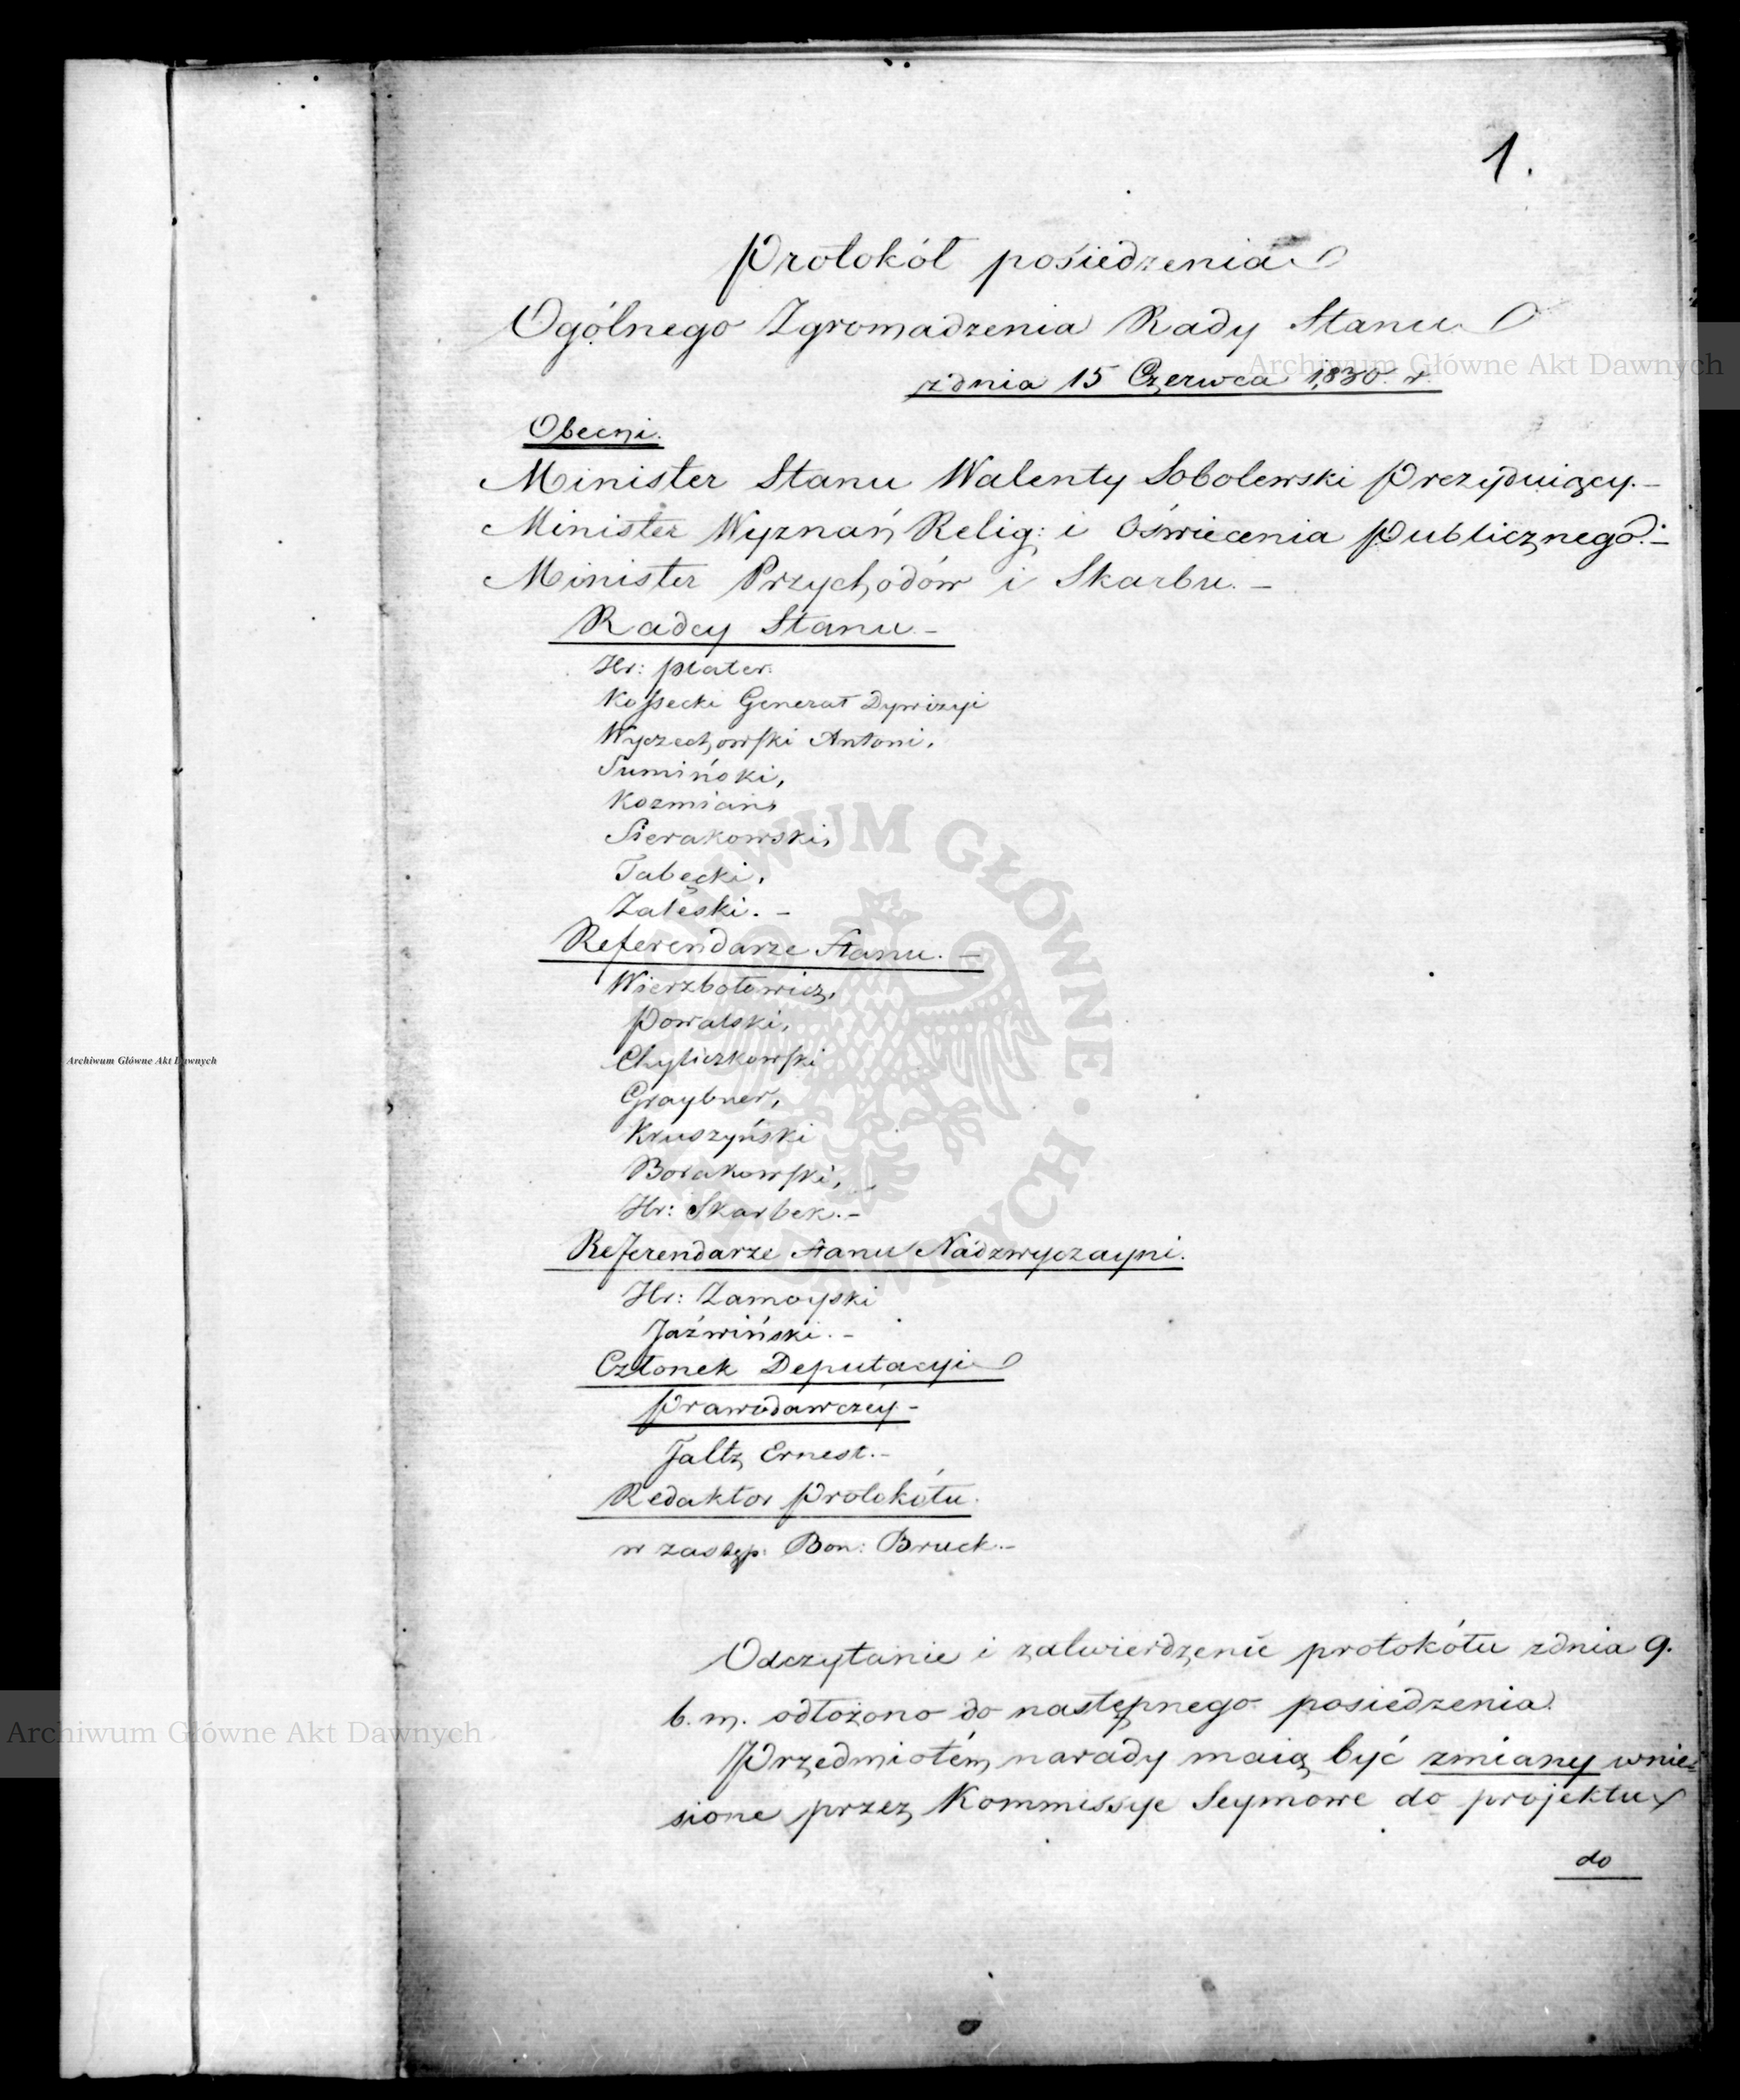 1.
Protokół posiedzenia
Ogólnego Zgromadzenia Rady Stanu
zdnia 15 Czerwca 1830. r.
Archiwum Główne Akt Dawnych
Obecni.
Minister Stanu Walenty Sobolewski Prezyduiący.-
Minister Wyznań Relig: i Oświecenia Publicznego.-
Minister Przychodów i Skarbu.-
Radcy Stanu.-
Hr: Plater.
Kossecki Generał Dywizyi
Wyczechowski Antoni,
Sumiński,
Kozmian,
Sierakowski,
Tabęcki,
Zaleski.-
Referendarze Stanu.-
Wierzbołowicz,
Powalski,
Chyliczkowski
Graybner,
Kruszyński
Borakowski,
Hr: Skarbek.-
Referendarze Stanu Nadzwyczayni.
Hr: Zamoyski
Jaźwiński.-
Członek Deputacyi
Prawodawczey-
Faltz Ernest.-
Redaktor Protokółu.
w zastęp: Bon: Bruck.-
Odczytanie i zatwierdzenie protokółu zdnia 9.
b. m. odłożono do następnego posiedzenia.
Przedmiotem narady maią być zmiany wnie-
sione przez Kommissye Seymowe do projektu
do
Archiwum Główne Akt Dawnych
Archiwum Główne Akt Dawnych
ARCHIWUM GŁÓWNE • AKT DAWNYCH